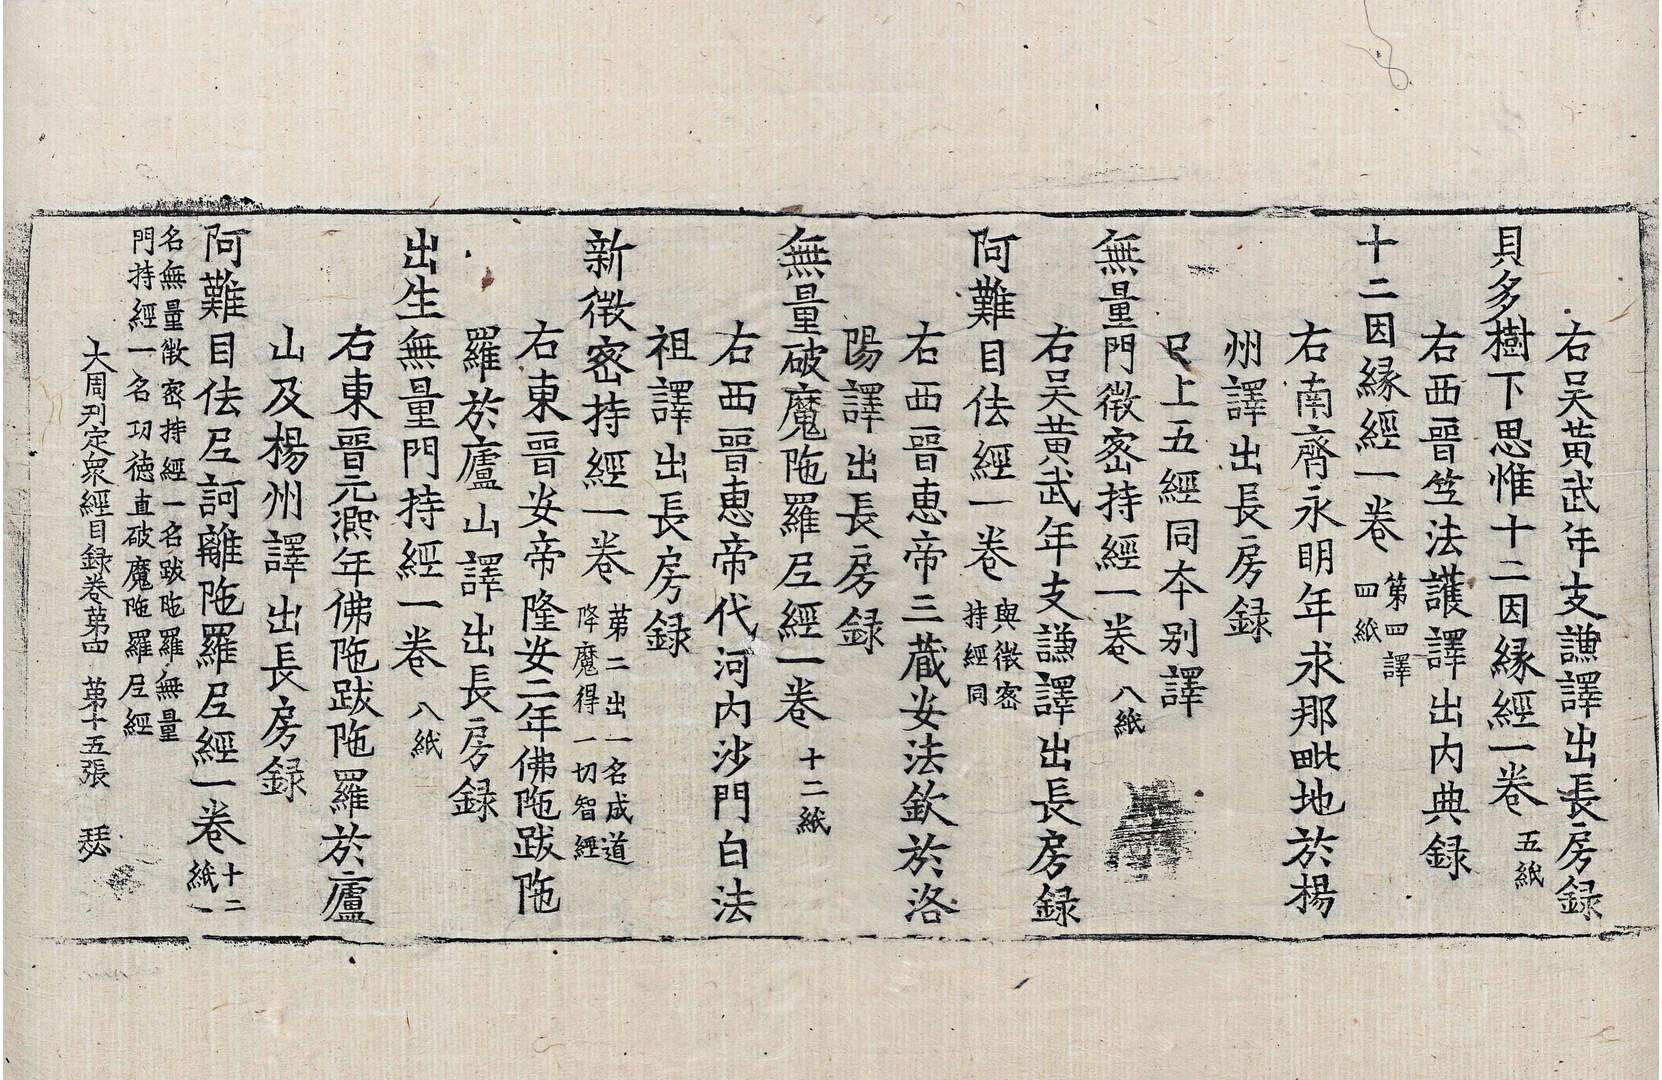 右吴黄武年支謙譯出長房録
貝多樹下思惟十二因緣經一卷 五紙
右西晉竺法護譯出内典録
十二因緣經一卷 第四譯
四紙
右南齊永明年求那毗地於楊
州譯出長房録
已上五經同本別譯
無量門微密持經一卷 八紙
右吴黄武年支謙譯出長房録
阿難目佉經一卷 與微密
持經同
右西晉惠帝三藏安法欽於洛
陽譯出長房録
無量破魔陁羅尼經一卷 十二紙
右西晉惠帝代河内沙門白法
祖譯出長房録
新微密持經一卷 第二出一名成道
降魔得一切智經
右東晉安帝隆安二年佛陁跋陁
羅於廬山譯出長房録
出生無量門持經一卷 八紙
右東晉元熙年佛陁跋陁羅於廬
山及楊州譯出長房録
阿難目佉尼訶離陁羅尼經一卷 十二
紙
名無量微密持經一名跋陁羅無量
門持經一名功德直破魔陁羅尼經
大周刋定衆經目録卷第四 第十五張 瑟